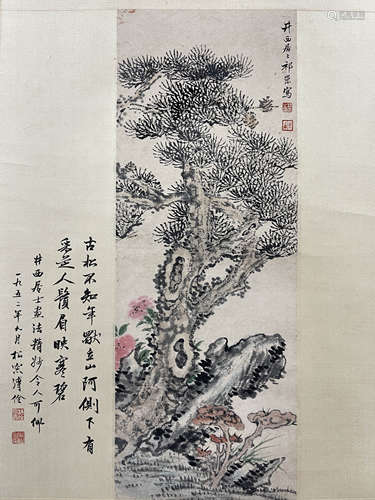 井西居士祁崑寫
古松不知年獸立山阿側下有
采芝人鬚眉映寒碧
井西居士畫法精妙令人可佩
一九五二年六月松窗溥佺